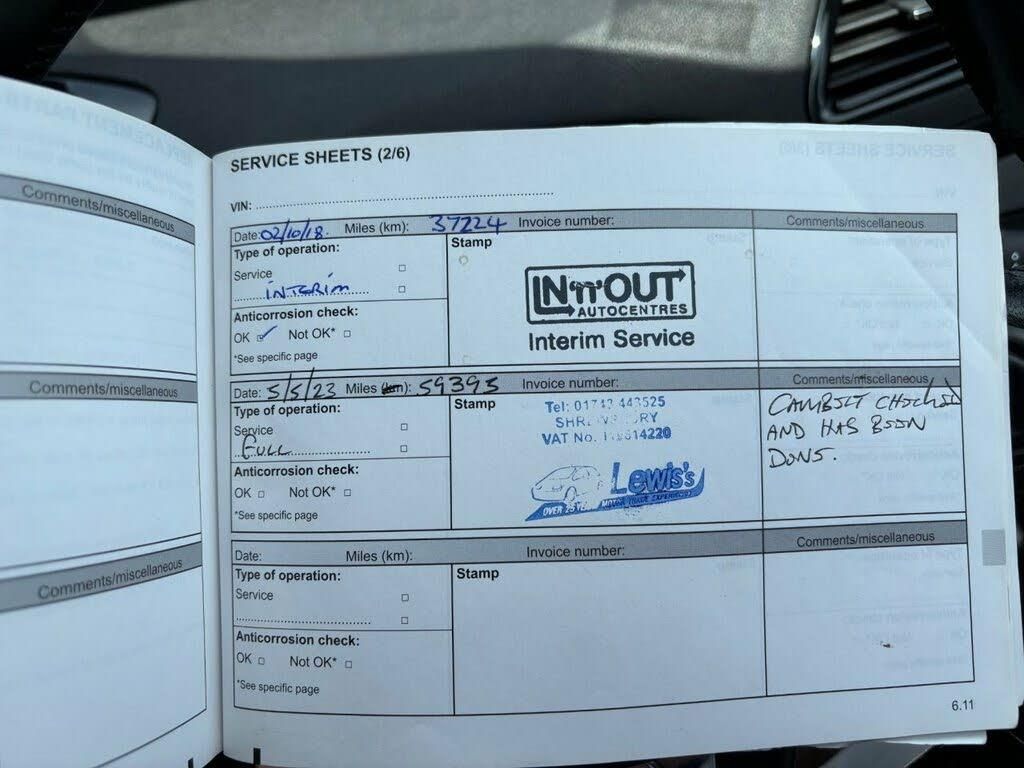 Comments/miscellaneous
Comments/miscellaneous
Comments/miscellaneous
SERVICE SHEETS (2/6)
VIN:
Date: 02/10/18. Miles (km): 37224 Invoice number: Comments/miscellaneous
Type of operation:
Service
INTERIM
Anticorrosion check:
OK ✓ Not OK*
*See specific page
Stamp
IN'n'OUT
AUTOCENTRES
Interim Service
Date: 5/5/23 Miles (km): 59393 Invoice number: Comments/miscellaneous
Type of operation:
Service
FULL
Anticorrosion check:
OK Not OK*
*See specific page
Stamp
Tel: 01743 443525
VAT No.
Lewis's
OVER 25 YEARS MOTOR TRADE EXPERIENCE
CAMBELT CHECKED
AND HAS BEEN
DONE.
Date: Miles (km): Invoice number: Comments/miscellaneous
Type of operation:
Service
Anticorrosion check:
OK Not OK*
*See specific page
Stamp
6.11